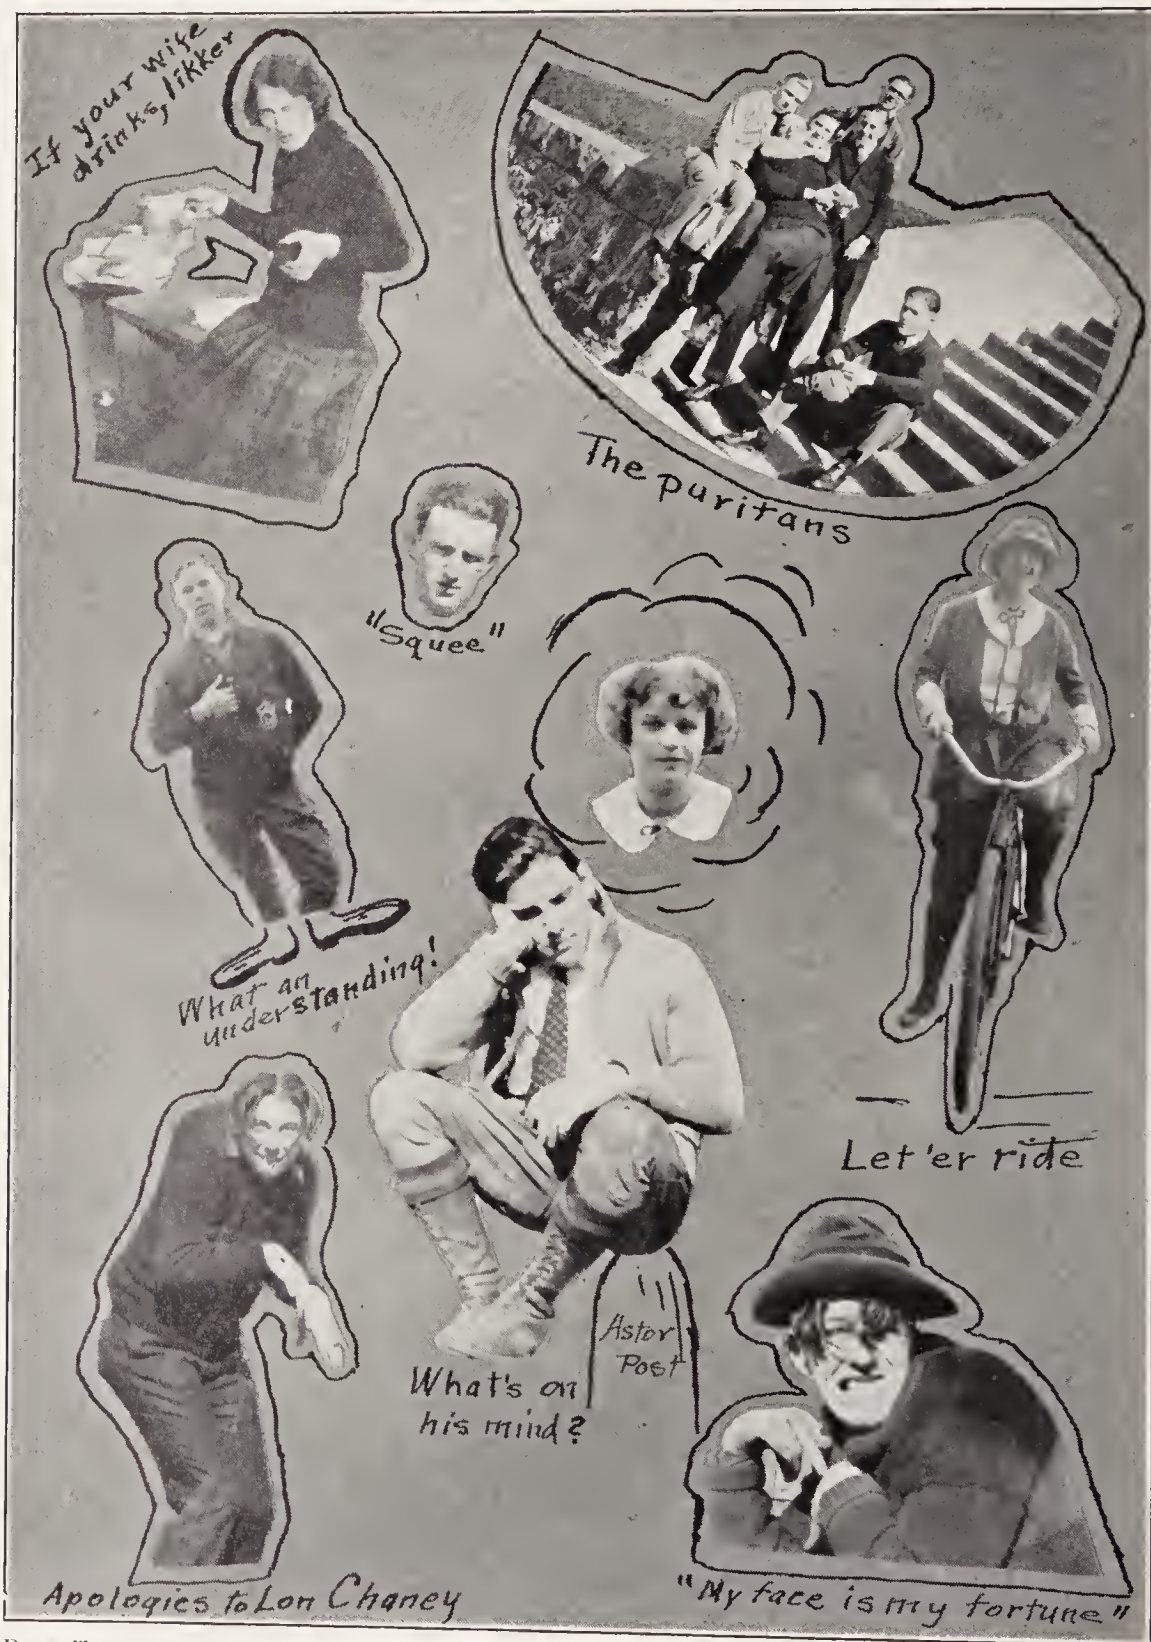 If your wife
drinks, likker
The puritans
"Squee"
What an
understanding!
Let 'er ride
Astor
Post
What's on
his mind?
Apologies to Lon Chaney
"My face is my fortune"